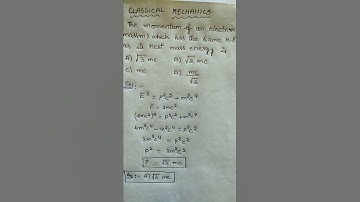 CLASSICAL MECHANICS
The momentum of an electron
mass m) which has the same K.E
as its rest mass energy is
A) √3 mc B) √2 mc
C) mc D) mc/√2
Sol:-
E² = p²c² + m²c⁴
E = 2mc²
(2mc²)² = p²c² + m²c⁴
4m²c⁴ - m²c⁴ = p²c²
3m²c⁴ = p²c²
p² = 3m²c²
P = √3 mc
A) √3 mc